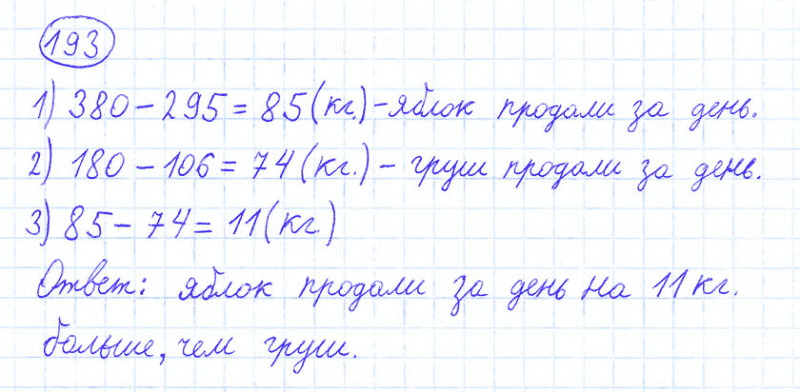 193
1) 380 - 295 = 85 (кг.) - яблок продали за день.
2) 180 - 106 = 74 (кг.) - груш продали за день.
3) 85 - 74 = 11 (кг.)
Ответ: яблок продали за день на 11 кг.
больше, чем груш.